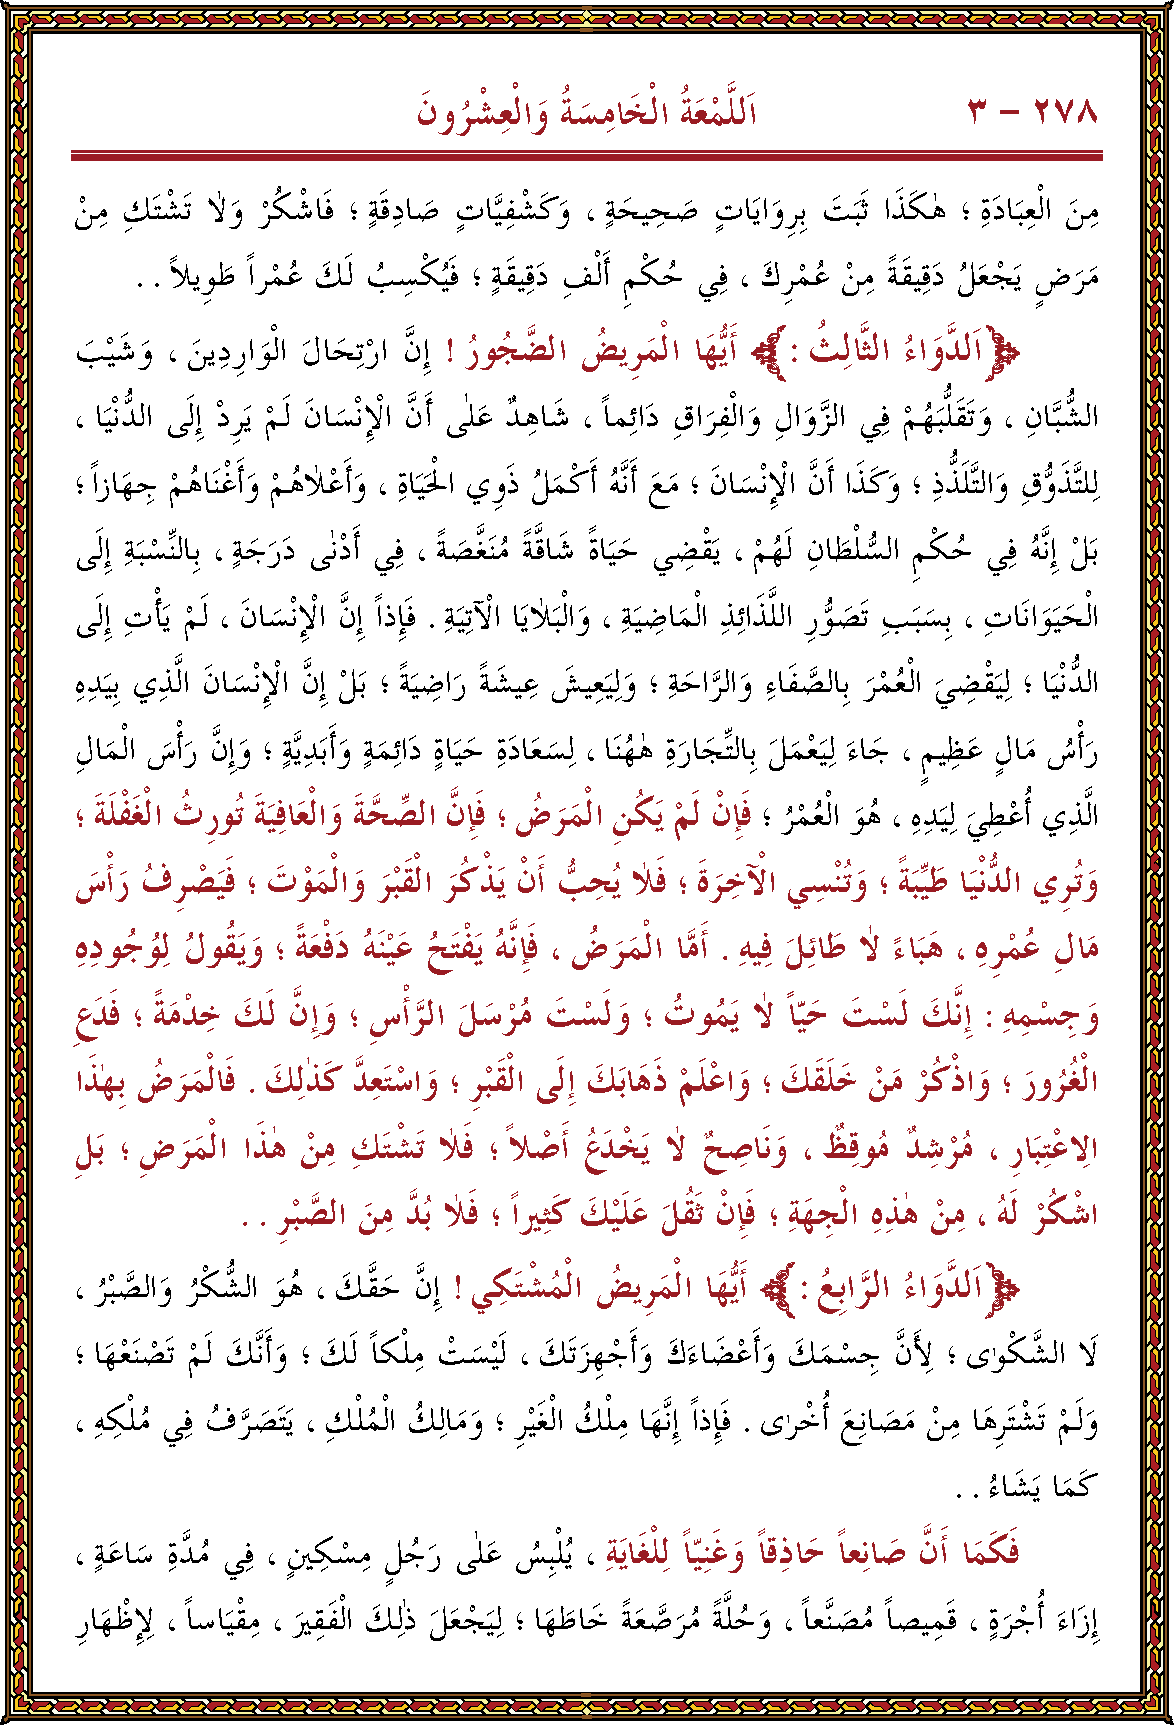 ٢٧٨ – ٣ اَللَّمْعَةُ الْخَامِسَةُ وَالْعِشْرُونَ
مِنَ الْعِبَادَةِ ؛ هٰكَذَا ثَبَتَ بِرِوَايَاتٍ صَحِيحَةٍ ، وَكَشْفِيَّاتٍ صَادِقَةٍ ؛ فَاشْكُرْ وَلَا تَشْتَكِ مِنْ
مَرَضٍ يَجْعَلُ دَقِيقَةً مِنْ عُمْرِكَ ، فِي حُكْمِ أَلْفِ دَقِيقَةٍ ؛ فَيُكْسِبُ لَكَ عُمْراً طَوِيلاً . .
﴿اَلدَّوَاءُ الثَّالِثُ : ﴾ أَيُّهَا الْمَرِيضُ الضَّجُورُ ! إِنَّ ارْتِحَالَ الْوَارِدِينَ ، وَشَيْبَ
الشُّبَّانِ ، وَتَقَلُّبَهُمْ فِي الزَّوَالِ وَالْفِرَاقِ دَائِماً ، شَاهِدٌ عَلٰى أَنَّ الْإِنْسَانَ لَمْ يَرِدْ إِلَى الدُّنْيَا ،
لِلتَّذَوُّقِ وَالتَّلَذُّذِ ؛ وَكَذَا أَنَّ الْإِنْسَانَ ؛ مَعَ أَنَّهُ أَكْمَلُ ذَوِي الْحَيَاةِ ، وَأَعْلَاهُمْ وَأَغْنَاهُمْ جِهَازاً ؛
بَلْ إِنَّهُ فِي حُكْمِ السُّلْطَانِ لَهُمْ ، يَقْضِي حَيَاةً شَاقَّةً مُنَغَّصَةً ، فِي أَدْنٰى دَرَجَةٍ ، بِالنِّسْبَةِ إِلَى
الْحَيَوَانَاتِ ، بِسَبَبِ تَصَوُّرِ اللَّذَائِذِ الْمَاضِيَةِ ، وَالْبَلَايَا الْآتِيَةِ . فَإِذاً إِنَّ الْإِنْسَانَ ، لَمْ يَأْتِ إِلَى
الدُّنْيَا ؛ لِيَقْضِيَ الْعُمْرَ بِالصَّفَاءِ وَالرَّاحَةِ ؛ وَلِيَعِيشَ عِيشَةً رَاضِيَةً ؛ بَلْ إِنَّ الْإِنْسَانَ الَّذِي بِيَدِهِ
رَأْسُ مَالٍ عَظِيمٍ ، جَاءَ لِيَعْمَلَ بِالتِّجَارَةِ هٰهُنَا ، لِسَعَادَةِ حَيَاةٍ دَائِمَةٍ وَأَبَدِيَّةٍ ؛ وَإِنَّ رَأْسَ الْمَالِ
الَّذِي أُعْطِيَ لِيَدِهِ ، هُوَ الْعُمْرُ ؛ فَإِنْ لَمْ يَكُنِ الْمَرَضُ ؛ فَإِنَّ الصِّحَّةَ وَالْعَافِيَةَ تُورِثُ الْغَفْلَةَ ؛
وَتُرِي الدُّنْيَا طَيِّبَةً ؛ وَتُنْسِي الْآخِرَةَ ؛ فَلَا يُحِبُّ أَنْ يَذْكُرَ الْقَبْرَ وَالْمَوْتَ ؛ فَيَصْرِفُ رَأْسَ
مَالِ عُمْرِهِ ، هَبَاءً لَا طَائِلَ فِيهِ . أَمَّا الْمَرَضُ ، فَإِنَّهُ يَفْتَحُ عَيْنَهُ دَفْعَةً ؛ وَيَقُولُ لِوُجُودِهِ
وَجِسْمِهِ : إِنَّكَ لَسْتَ حَيّاً لَا يَمُوتُ ؛ وَلَسْتَ مُرْسَلَ الرَّأْسِ ؛ وَإِنَّ لَكَ خِدْمَةً ؛ فَدَعِ
الْغُرُورَ ؛ وَاذْكُرْ مَنْ خَلَقَكَ ؛ وَاعْلَمْ ذَهَابَكَ إِلَى الْقَبْرِ ؛ وَاسْتَعِدَّ كَذٰلِكَ . فَالْمَرَضُ بِهٰذَا
الِاعْتِبَارِ ، مُرْشِدٌ مُوقِظٌ ، وَنَاصِحٌ لَا يَخْدَعُ أَصْلاً ؛ فَلَا تَشْتَكِ مِنْ هٰذَا الْمَرَضِ ؛ بَلِ
اشْكُرْ لَهُ ، مِنْ هٰذِهِ الْجِهَةِ ؛ فَإِنْ ثَقُلَ عَلَيْكَ كَثِيراً ؛ فَلَا بُدَّ مِنَ الصَّبْرِ . .
﴿اَلدَّوَاءُ الرَّابِعُ : ﴾ أَيُّهَا الْمَرِيضُ الْمُشْتَكِي ! إِنَّ حَقَّكَ ، هُوَ الشُّكْرُ وَالصَّبْرُ ،
لَا الشَّكْوٰى ؛ لِأَنَّ جِسْمَكَ وَأَعْضَاءَكَ وَأَجْهِزَتَكَ ، لَيْسَتْ مِلْكاً لَكَ ؛ وَأَنَّكَ لَمْ تَصْنَعْهَا ؛
وَلَمْ تَشْتَرِهَا مِنْ مَصَانِعَ أُخْرٰى . فَإِذاً إِنَّهَا مِلْكُ الْغَيْرِ ؛ وَمَالِكُ الْمُلْكِ ، يَتَصَرَّفُ فِي مُلْكِهِ ،
كَمَا يَشَاءُ . .
فَكَمَا أَنَّ صَانِعاً حَاذِقاً وَغَنِيّاً لِلْغَايَةِ ، يُلْبِسُ عَلٰى رَجُلٍ مِسْكِينٍ ، فِي مُدَّةِ سَاعَةٍ ،
إِزَاءَ أُجْرَةٍ ، قَمِيصاً مُصَنَّعاً ، وَحُلَّةً مُرَصَّعَةً خَاطَهَا ؛ لِيَجْعَلَ ذٰلِكَ الْفَقِيرَ ، مِقْيَاساً ، لِإِظْهَارِ